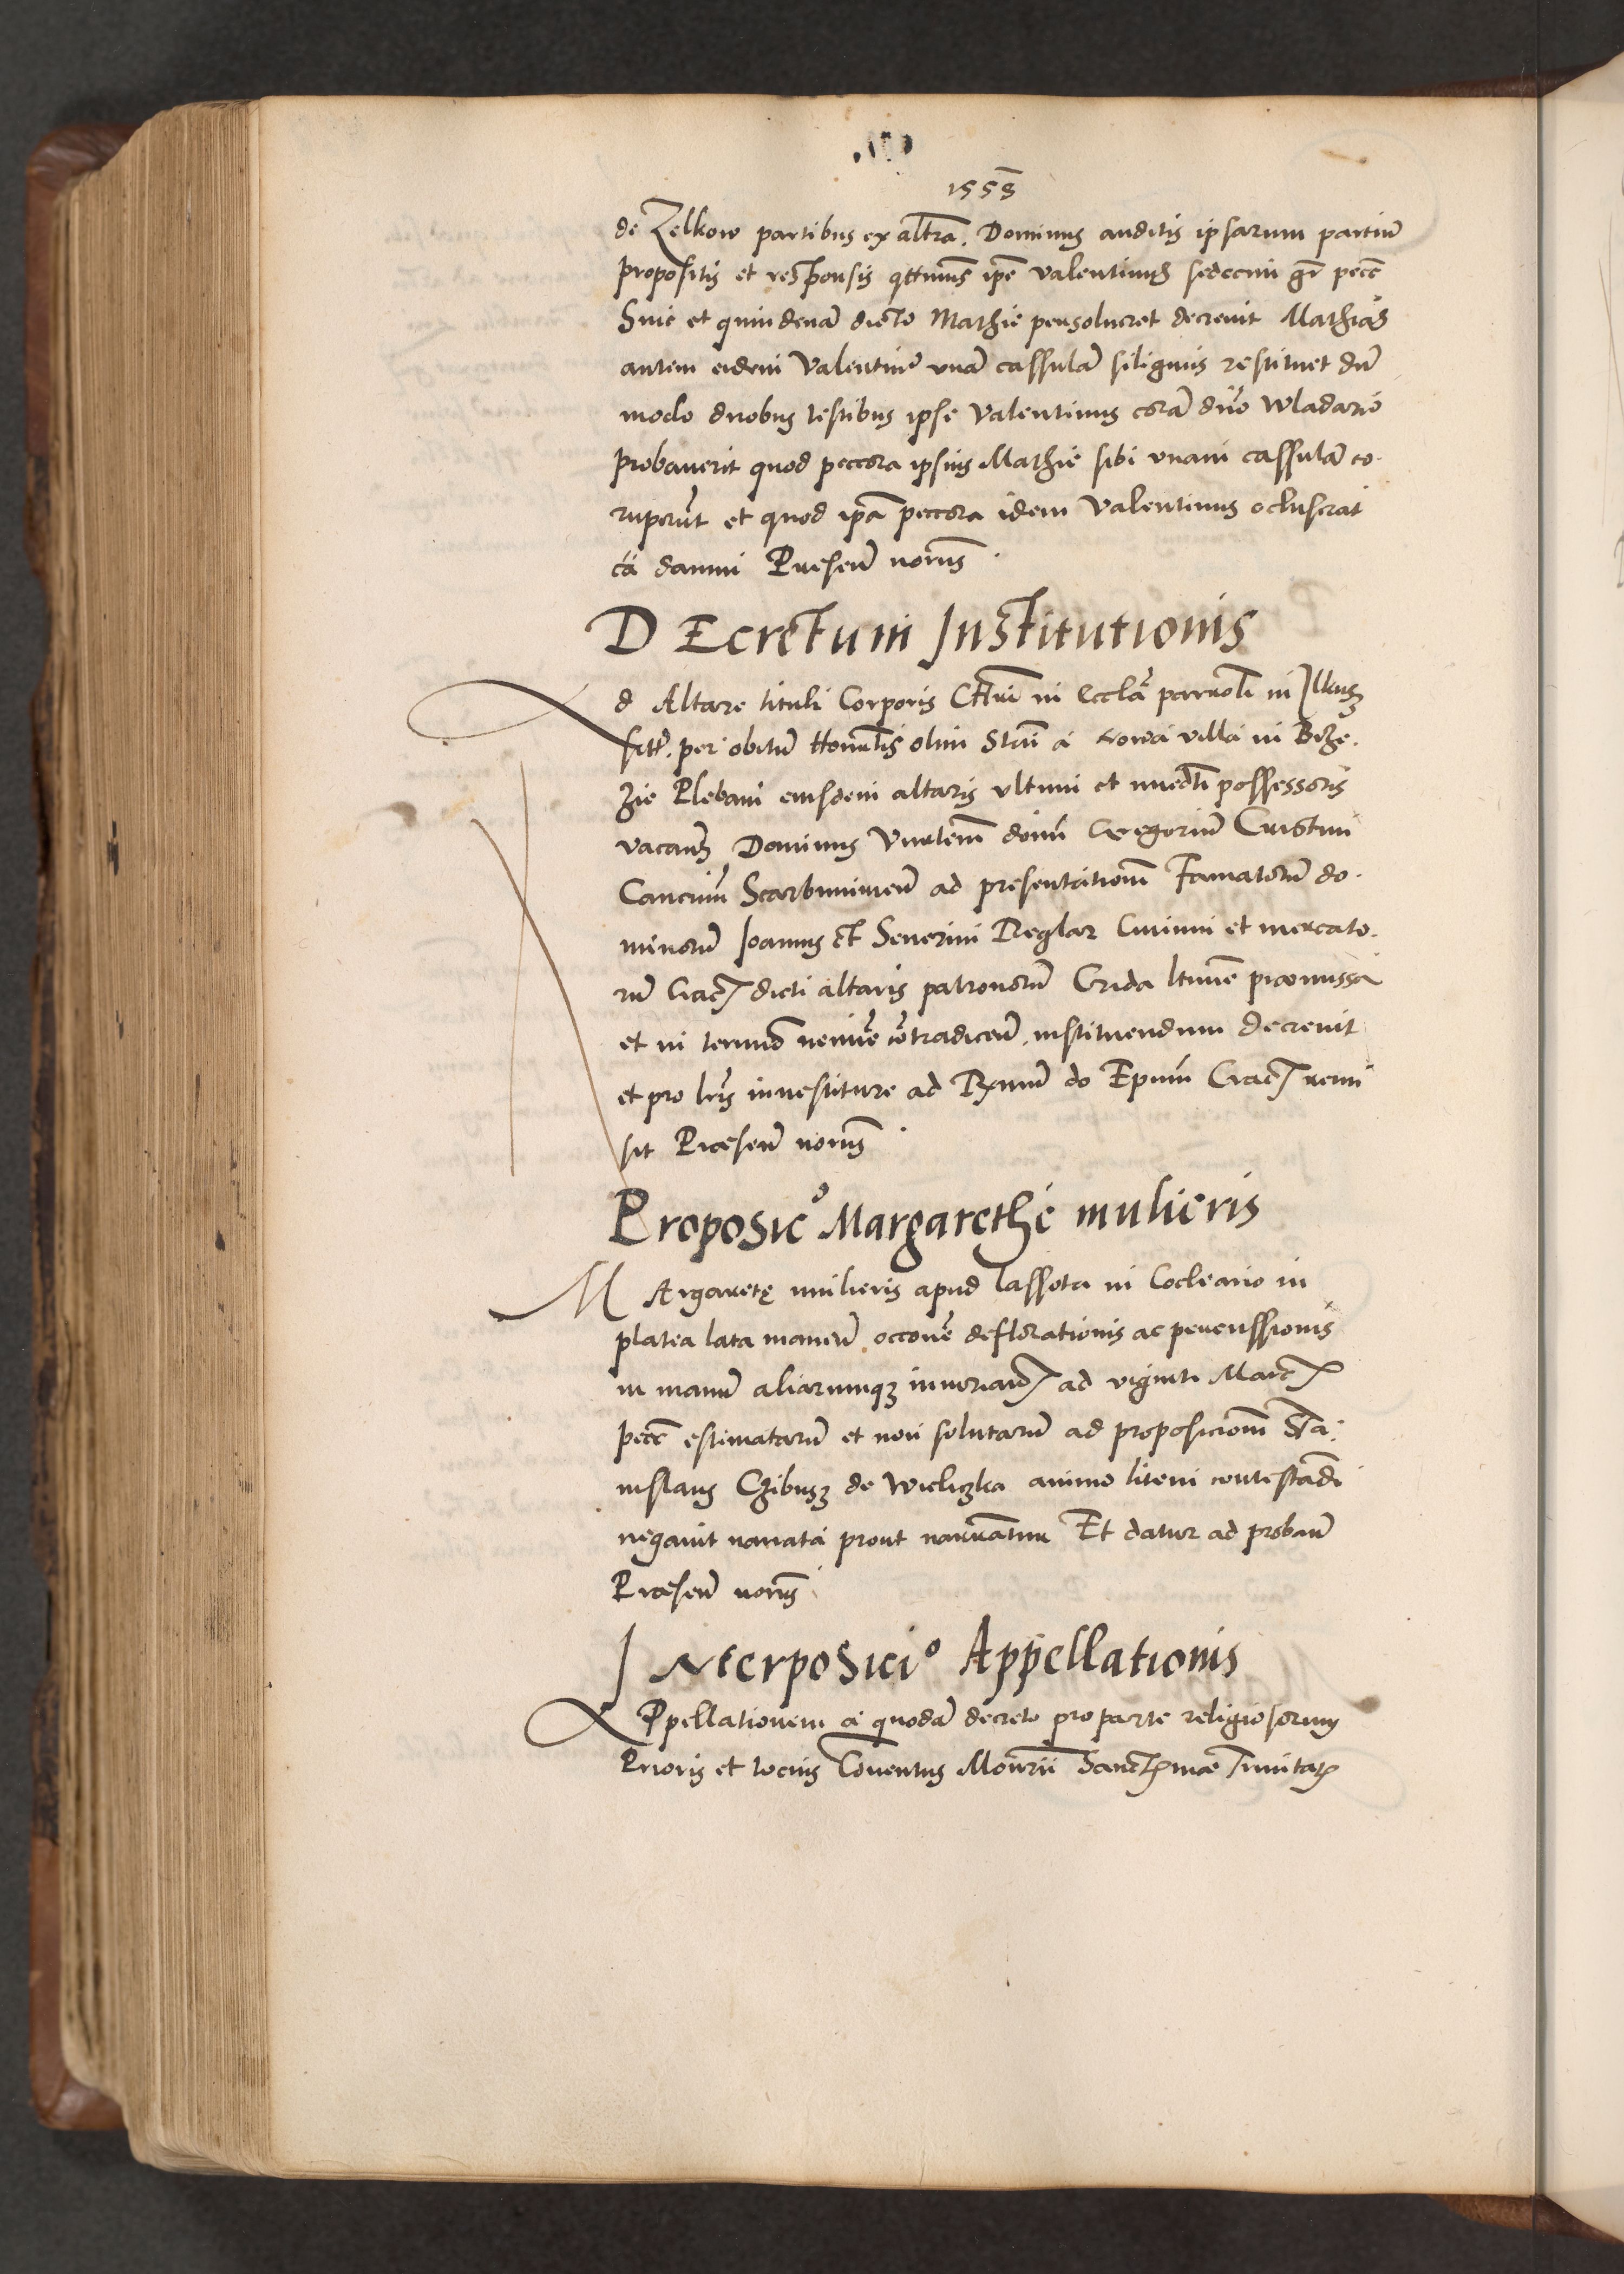 1553
de Zelkow partibus ex altra. Dominus auditis ipsarum partiu
propositis et responsis qtnus ipe Valentinus sedecim gr pecc
Suie et quindena dicto Mathie persolueret decreuit Mathias
autem eidem Valentino vna cassula siliginis restituet du
modo duobus testibus ipse Valentinus cora dno Wladario
probauerit quod peccora ipsius Mathie sibi vnam cassula co
ruperut et quod ipa peccora idem Valentinus ocluserat
ca damni Presen norus
DEcretum Institutionis
Ad Altare tituli Corporis Chri in Eccla parroli in Ilkusz
sitt. per obitu Honlis olim Stai a Nowa villa in Bize
zie Plebani eiusdem altaris vltimi et imedti possessoris
vacans Dominus Vurlem doim Gregoriu Cristini
Cancium Scarbimirien ad presentationem Famatoru do
minoru Joannis et Seuerini Reglar Ciuium et mercato
ru Crac dicti altaris patronoru Crida ltime præmissa
et in termino nemine contradicen. instituendum decreuit
et pro lris inuestiture ad Rxmu do Epum Crac remi
sit Præsen norus
Proposicio Margarethe mulieris
MArgarete mulieris apud Lassota in Cocleario in
platea lata manen occone deflorationis ac percussionis
in manu aliarumque iniuriar ad viginti Marc
pecc estimataru et non solutaru ad proposicionem Sta
nislaus Czibusz de Wieliczka animo litem contestadi
negauit narrata prout narrantur Et datur ad proban
Præsen norus
INterposicio Appellationis
APpellationem a quoda decreto pro parte religiosorum
Prioris et tocius Conuentus Monrii Sanctmæ Trinitatis